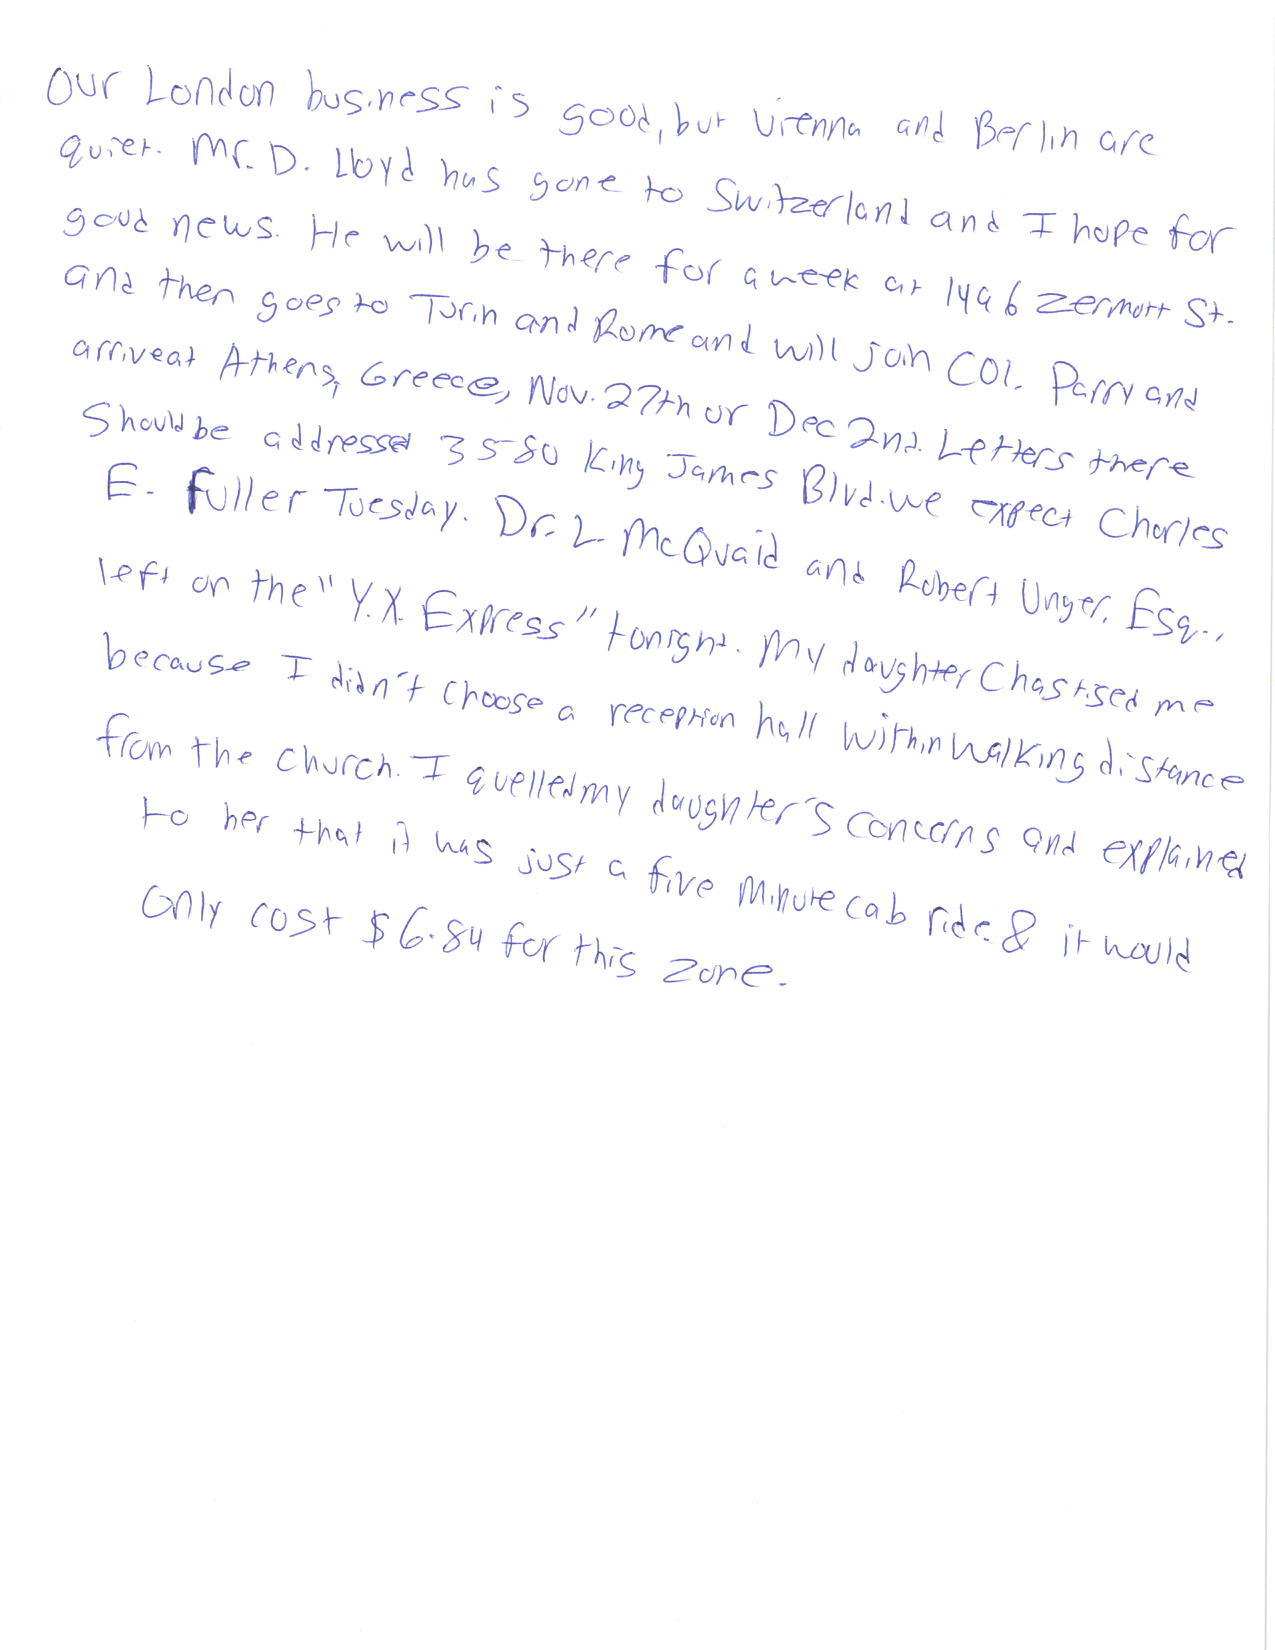 Our London business is good, but Vienna and Berlin are
quiet. Mr. D. Lloyd has gone to Switzerland and I hope for
good news. He will be there for a week at 1496 Zermott St.
and then goes to Turin and Rome and will join COl. Parry and
arrive at Athens, Greece, Nov. 27th or Dec 2nd. Letters there
Should be addressed 3580 King James Blvd. we expect Charles
E. Fuller Tuesday. Dr. L. McQuaid and Robert Unger, Esq.,
left on the "Y.X. Express" tonight. My daughter Chastised me
because I didn't choose a reception hall within walking distance
from the church. I quelled my daughter's concerns and explained
to her that it was just a five minute cab ride & it would
only cost $6.84 for this zone.